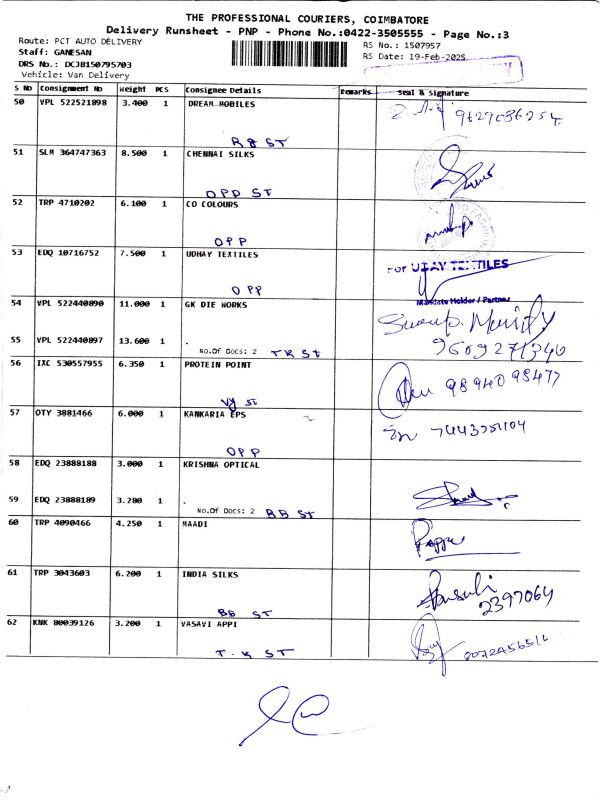 THE PROFESSIONAL COURIERS, COIMBATORE
Delivery Runsheet - PNP - Phone No.:0422-3505555 - Page No.:3
Route: PCT AUTO DELIVERY
RS No.: 1507957
Staff: GANESAN
RS Date: 19-Feb-2025
DRS No.: DCJB150795703
Vehicle: Van Delivery
S No Consignment No Weight PCS Consignee Details Remarks Seal & Signature
50 VPL 522521898 3.400 1 DREAM MOBILES
R8 ST
51 SLM 364747363 8.500 1 CHENNAI SILKS
OPP ST
52 TRP 4710202 6.100 1 CO COLOURS
OPP
53 EDQ 10716752 7.500 1 UDHAY TEXTILES
For UDAY TEXTILES
OPP
Mandate Holder / Partner
54 VPL 522440890 11.000 1 GK DIE WORKS
55 VPL 522440897 13.600 1 .
No.Of Docs: 2 TK ST
9609271340
56 IXC 530557955 6.350 1 PROTEIN POINT
9894098477
VY ST
57 OTY 3881466 6.000 1 KANKARIA EPS
OPP
58 EDQ 23888188 3.000 1 KRISHNA OPTICAL
59 EDQ 23888189 3.280 1 .
No.Of Docs: 2 BB ST
60 TRP 4090466 4.250 1 MAADI
Pappu
61 TRP 3043603 6.200 1 INDIA SILKS
2397064
BB ST
62 KNK 80039126 3.200 1 VASAVI APPI
T.K ST